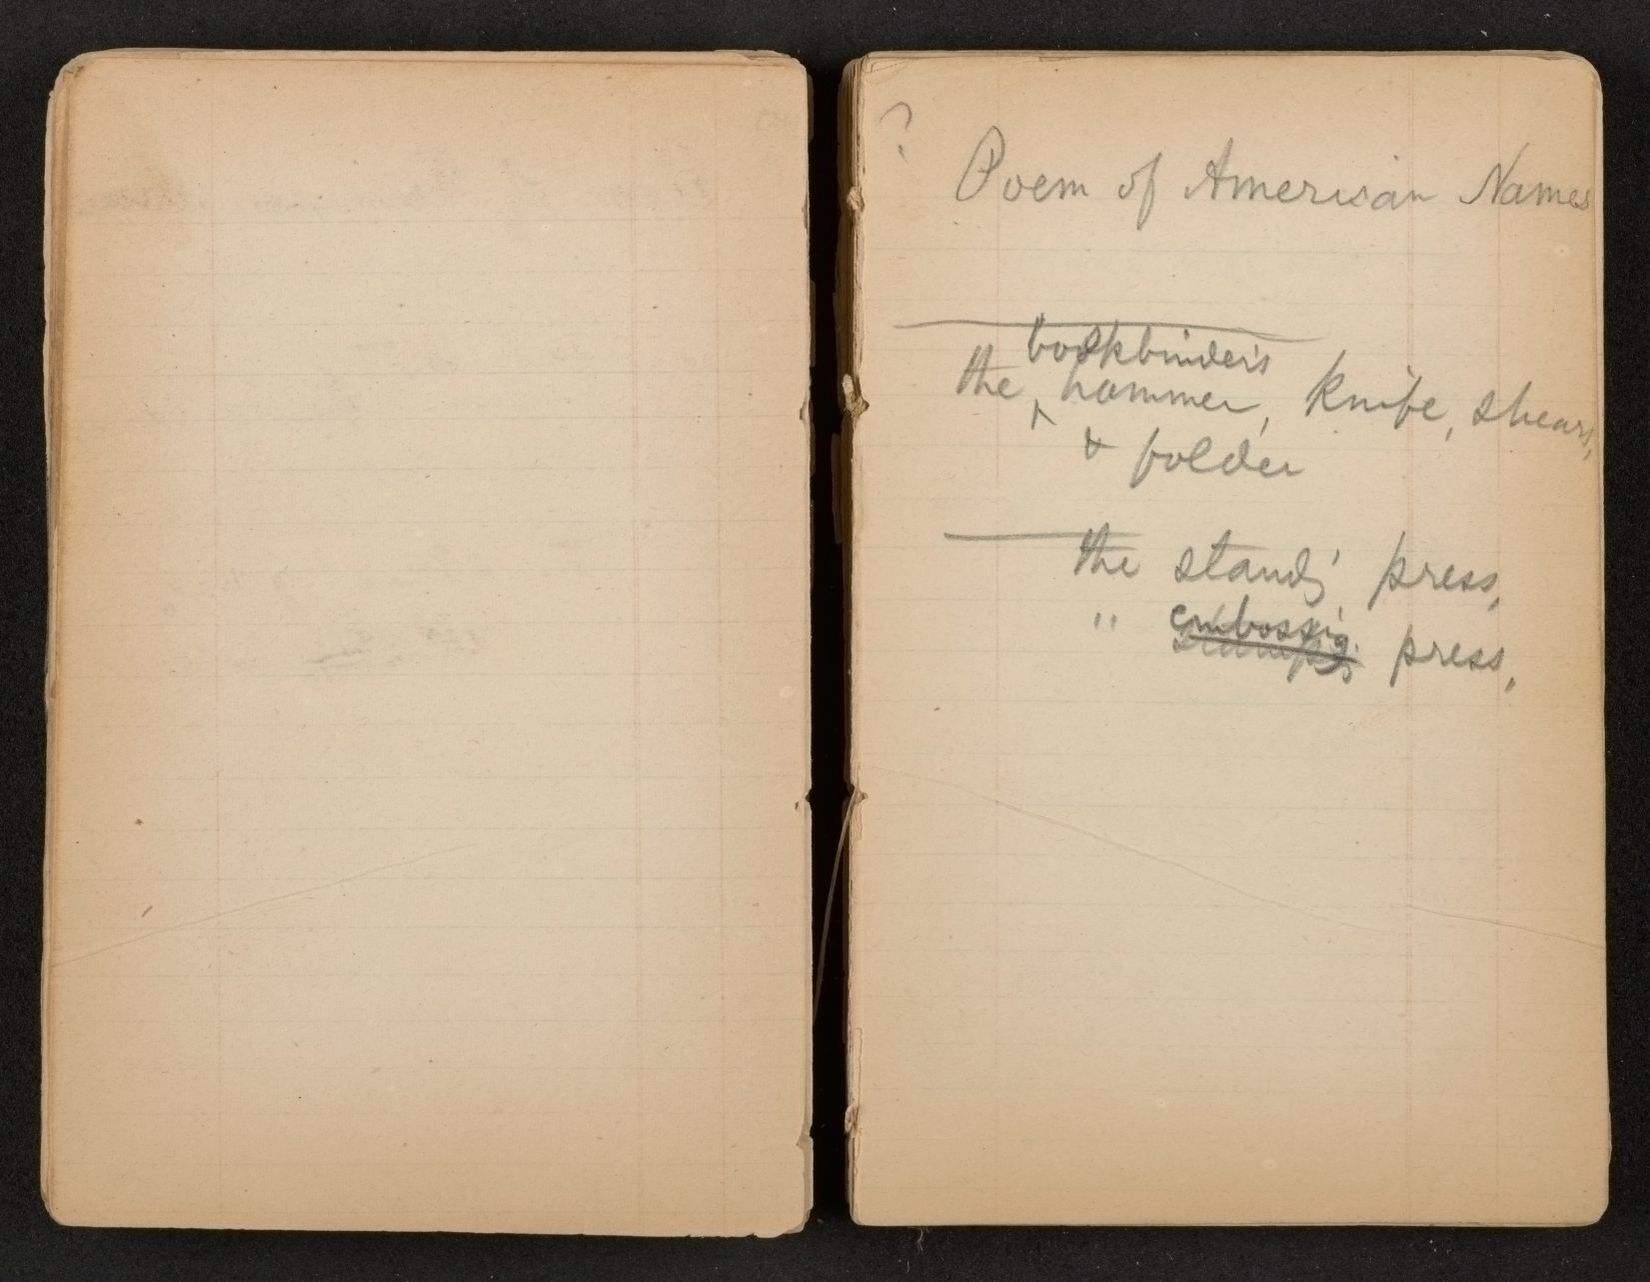 ?
Poem of American Names
bookbinder's
the ‸ hammer, knife, shears,
& folder
the standg press,
" embossing
stampg press,